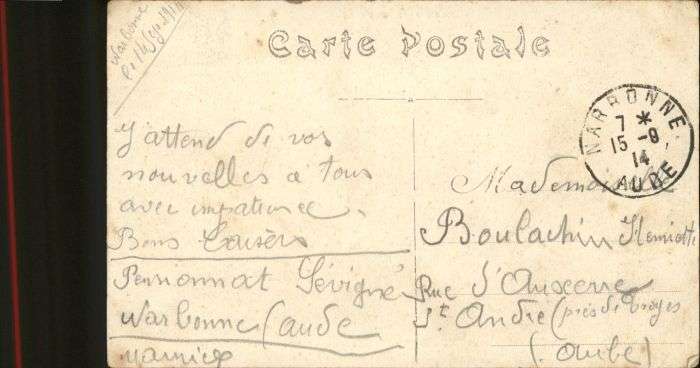 Narbonne
Carte Postale
NARBONNE
7 *
15 -9
14
AUDE
J'attend de vos
nouvelles à tous
avec impatience.
Bons baisers
Pensionnat Sévigné
Narbonne (aude
Maurice
Mademoiselle
Boulachin Henriette
Rue d'Auxerre
St. André (près de Troyes
(Aube)